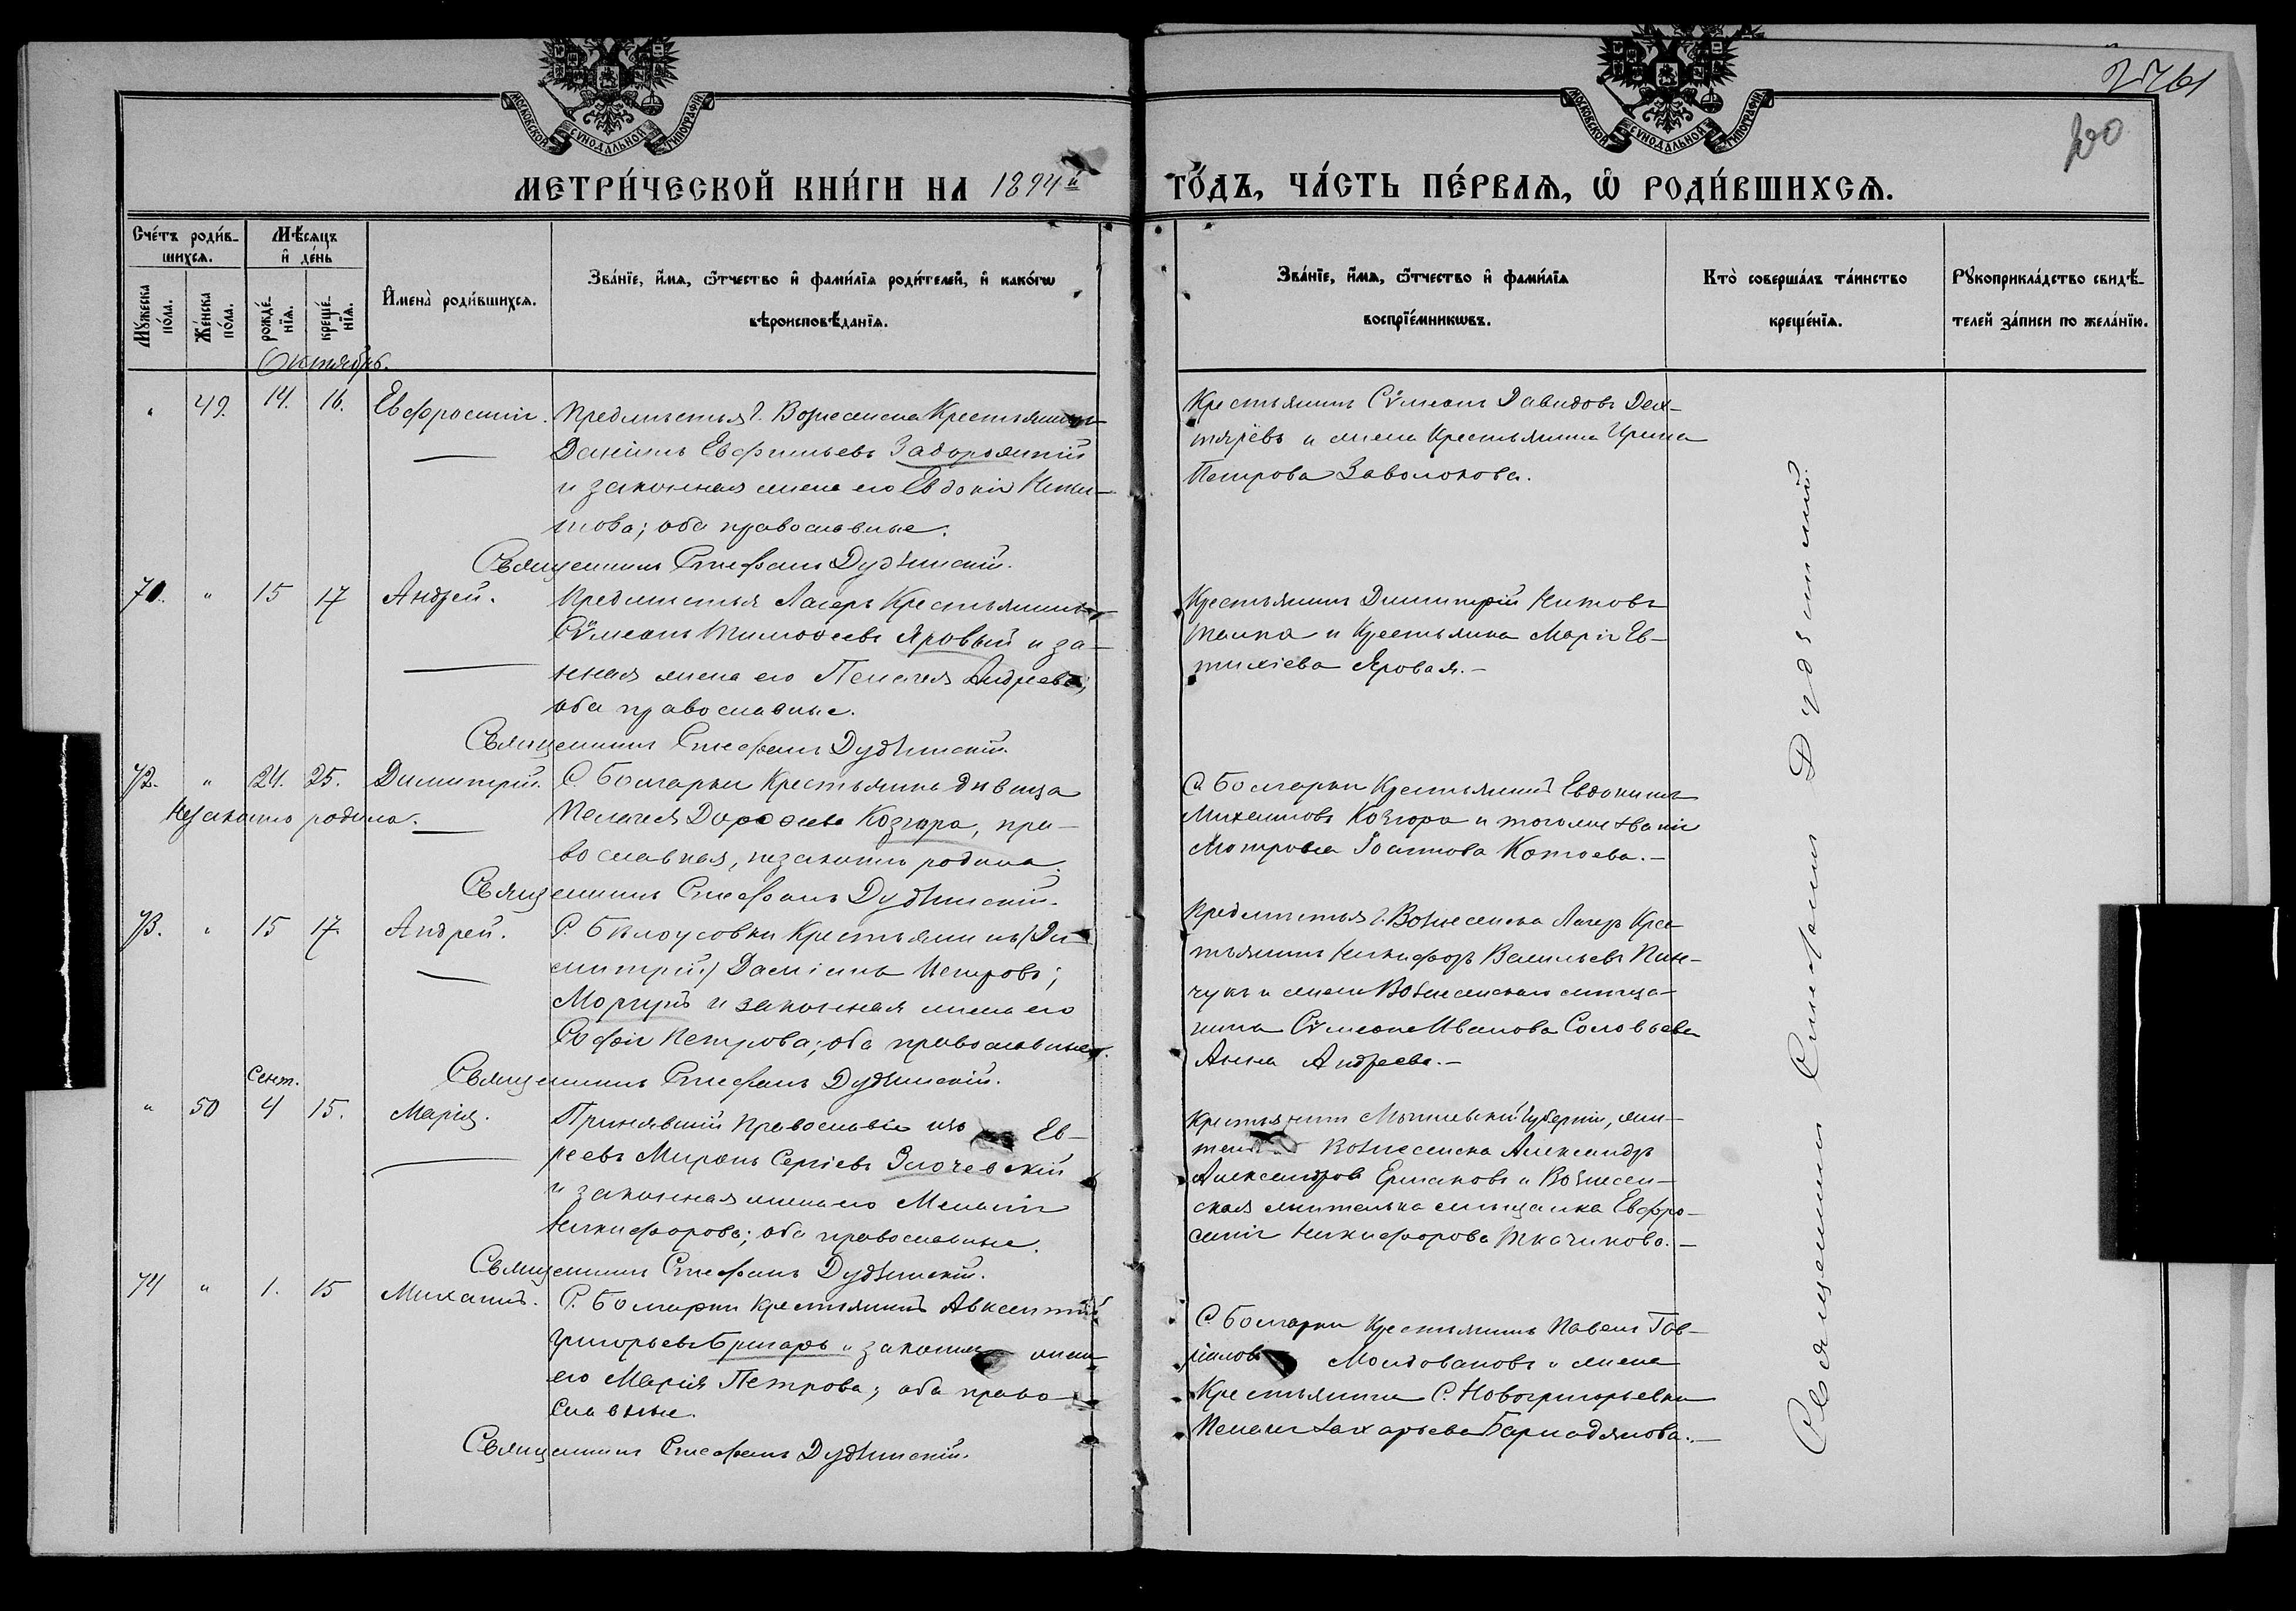 МОСКОВСКОЙ СѴНОДАЛЬНОЙ ТИПОГРАФІИ
МОСКОВСКОЙ СѴНОДАЛЬНОЙ ТИПОГРАФІИ
200
МЕТРИ́ЧЕСКОЙ КНИ́ГИ НА 1894й ГО́ДЪ, ЧА́СТЬ ПЕ́РВАѦ, Ѽ РОДИ́ВШИХСѦ.
Сче́тъ роди́в-
шихсѧ.
Мѣ́сѧцъ
и҆ де́нь
Мꙋ́жеска
по́ла.
Же́нска
по́ла.
рожде́-
нїѧ.
креще́-
нїѧ.
И҆мена̀ роди́вшихсѧ.
Зва́нїе, и҆́мѧ, ѻ҆́тчество и҆ фами́лїѧ роди́телей, и҆ како́гѡ
вѣроисповѣ́данїѧ.
Зва́нїе, и҆́мѧ, ѻ҆́тчество и҆ фами́лїѧ
воспрїе́мникѡвъ.
Кто̀ соверша́лъ та́инство
креще́нїѧ.
Рꙋкоприкла́дство свидѣ́-
телей за́писи по жела́нїю.
Октябрь.
" 49. 14. 16. Евфросинія.
Предмѣстья г. Вознесенска Крестьянинъ
Даніилъ Евфимьевъ Задорожній
и законная жена его Евдокія Ники-
това; оба православные.
Священникъ Стефанъ Дудзинскій.
Крестьянинъ Сѵмеонъ Давидовъ Дех-
тярёвъ и жена Крестьянина Ирина
Петрова Заволокова.
71. " 15 17 Андрей.
Предмѣстья Лагерь Крестьянинъ
Сѵмеонъ Тимоѳеевъ Яровый и за-
нная жена его Пелагея Андреева;
оба православные.
Священникъ Стефанъ Дудзинскій.
Крестьянинъ Димитрій Титовъ
и Крестьянка Марія Ев-
тихіева Яровая.-
72. " 24. 25. Димитрій.
Незаконно родила.
С. Болгарки Крестьянка дѣвица
Пелагея Дороѳеева Козюра, пра-
вославная, незаконно родила.
Священникъ Стефанъ Дудзинскій.
С. Болгарки Крестьянинъ Евдокимъ
Михаиловъ Козюра и того же званія
Мотрона Іоаннова Котоева.-
73. " 15 17. Андрей.
С. Бѣлоусовки Крестьянинъ (Ди-
митрій) Даміанъ Петровъ;
и законная жена его
Софія Петрова; оба православные.
Священникъ Стефанъ Дудзинскій.
Предмѣстья г. Вознесенска Лагерь Крес-
тьянинъ Никифоръ Васильевъ Пин-
чукъ и жена Вознесенскаго мѣща-
нина Сѵмеона Иванова Соловьева
Анна Андреева.-
Сент.
" 50 4 15. Марія.
Принявшій Православіе изъ Ев-
реевъ Миронъ Сергіевъ Злочевскій
и законная жена его Меланія
Никифорова; оба православные.
Священникъ Стефанъ Дудзинскій.
Крестьянинъ Могилевской Губерніи, жи-
тель Вознесенска Александръ
Александровъ Ермаковъ и Вознесен-
ская жителька мѣщанка Евфро-
синія Никифорова Ткачикова.-
74 " 1. 15 Михаилъ.
С. Болгарки Крестьянинъ Авксентій
Григорьевъ Бригарь и законная жена
его Марія Петрова; оба право-
славные.
Священникъ Стефанъ Дудзинскій.
С. Болгарки Крестьянинъ Павелъ Гав-
риловъ Молдовановъ и жена
Крестьянина С. Новогригорьевки
Пелагія Захарьева
Священникъ Стефанъ Дудзинскій.